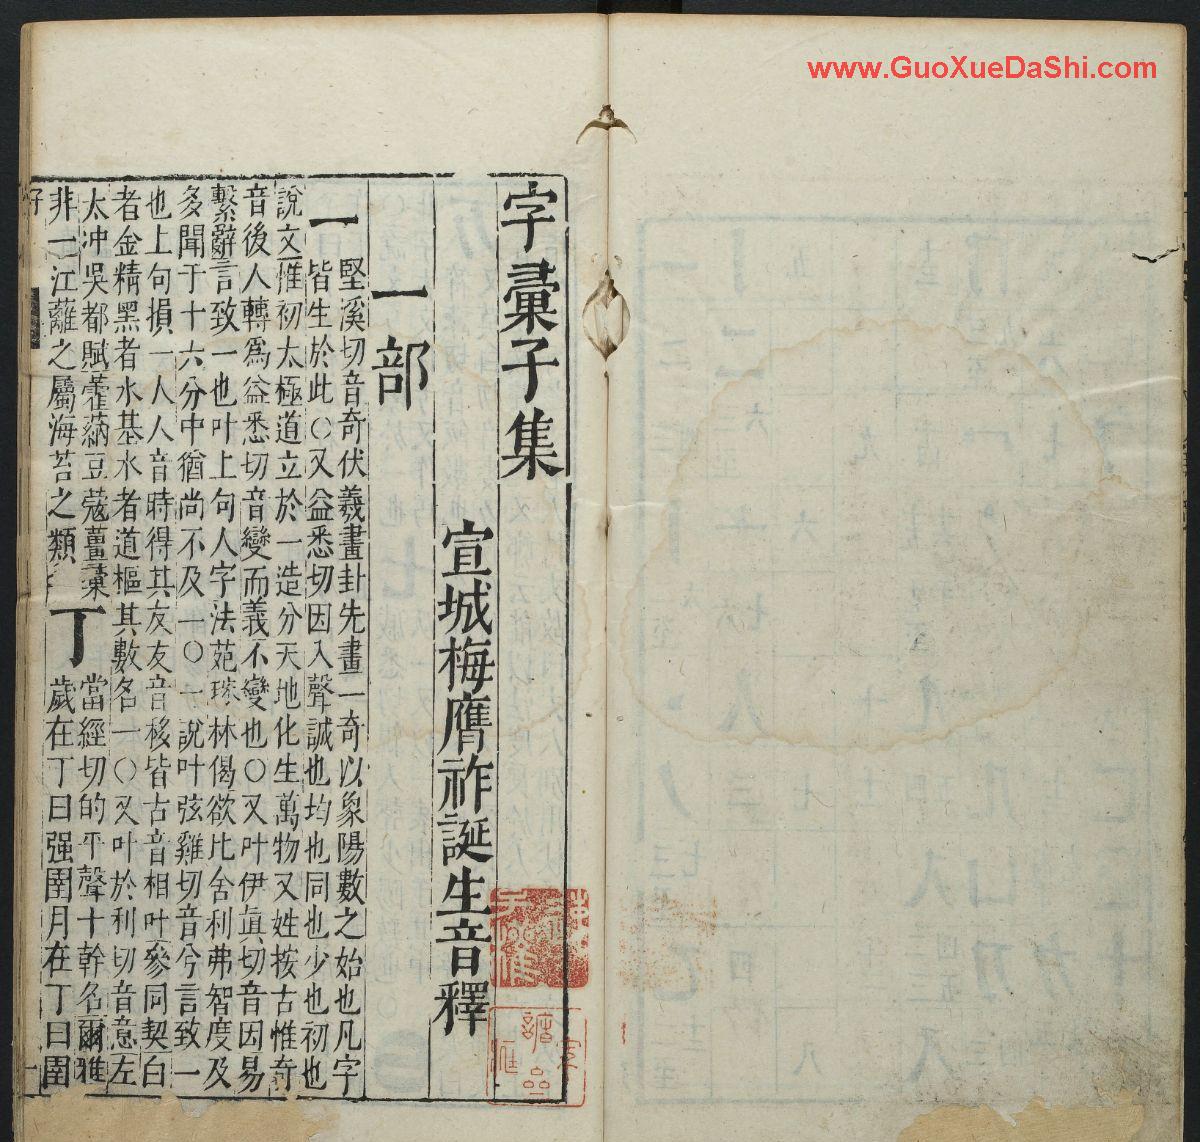 www.GuoXueDaShi.com
字彙子集
宣城梅膺祚誕生音釋
一部
一
堅溪切音奇伏羲畫卦先畫一奇以象陽數之始也凡字
皆生於此○又益悉切因入聲誠也均也同也少也初也
說文惟初太極道立於一造分天地化生萬物又姓按古惟奇
音後人轉爲益悉切音變而義不變也○又叶伊眞切音因易
繫辭言致一也叶上句人字法苑珠林偈欲比舍利弗智度及
多聞于十六分中猶尚不及一○一說叶弦雞切音兮言致一
也上句損一人人音時得其友友音移皆古音相叶參同契白
者金精黑者水基水者道樞其數名一○又叶於利切音意左
太冲吳都賦藿蒳豆蔻薑彙
非一江蘺之屬海苔之類
丁
當經切的平聲十幹名爾雅
歲在丁曰强圉月在丁曰圉